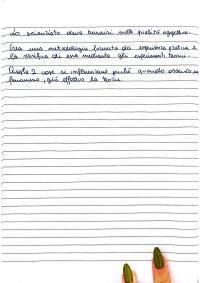 Lo scienziato deve basarsi sulla qualità oggettive.
Crea una metodologia formata da esperienza pratica e
la verifica di essa mediante gli esperimenti teorici.
Queste 2 cose si influenzano perché quando osservo un
fenomeno, già effettuo la teoria.